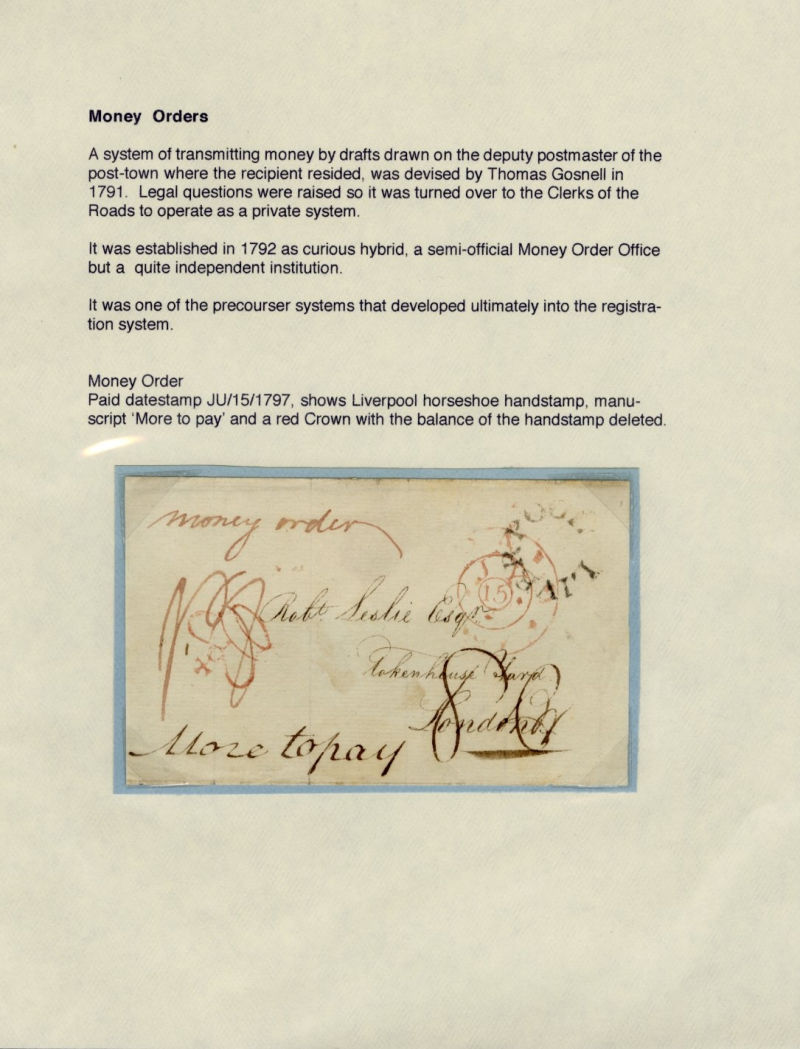 Money Orders
A system of transmitting money by drafts drawn on the deputy postmaster of the
post-town where the recipient resided, was devised by Thomas Gosnell in
1791. Legal questions were raised so it was turned over to the Clerks of the
Roads to operate as a private system.
It was established in 1792 as curious hybrid, a semi-official Money Order Office
but a quite independent institution.
It was one of the precourser systems that developed ultimately into the registra-
tion system.
Money Order
Paid datestamp JU/15/1797, shows Liverpool horseshoe handstamp, manu-
script ‘More to pay’ and a red Crown with the balance of the handstamp deleted.
money order
15
Robt Leslie Esqr
Tokenhouse Yard
London
More to pay